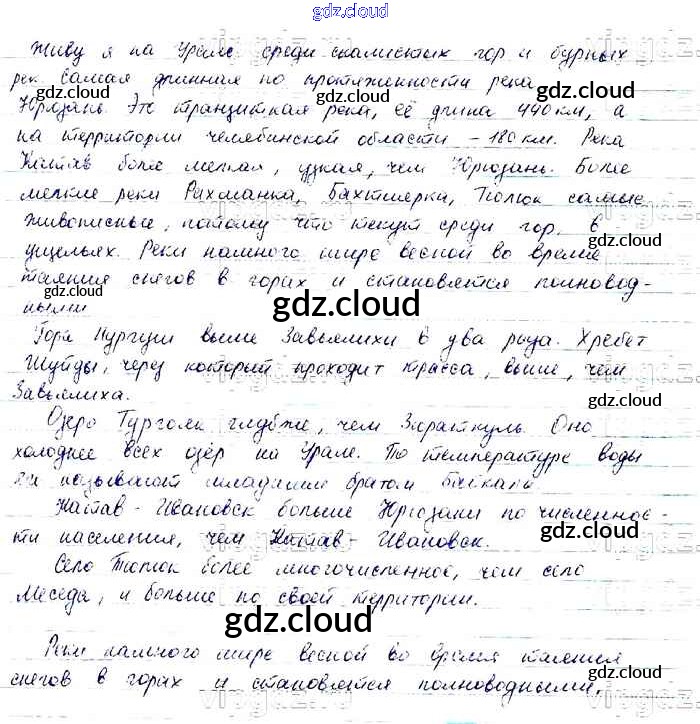 gdz.cloud
Живу я на Урале среди скалистых гор и бурных
рек. Самая длинная по протяженности река
Юрюзань. Это транзитная река, её длина 440 км, а
на территории Челябинской области – 180 км. Река
Катав более мелкая, узкая, чем Юрюзань. Более
мелкие реки Рахмалка, Бахтиярка, Тюлюк самые
живописные, потому что текут среди гор, в
ущельях. Реки намного шире весной во время
таяния снегов в горах и становятся полновод-
ными
Гора Нургуш выше Завьялихи в два раза. Хребет
Шуйды, через который проходит трасса, выше, чем
Завьялиха.
Озеро Тургояк глубже, чем Зюраткуль. Оно
холоднее всех озёр на Урале. По температуре воды
называют младшим братом Байкала
Катав-Ивановск больше Юрюзани по численнос-
ти населения, чем Катав-Ивановск.
Село Тюлюк более многочисленное, чем село
Меседа, и больше по своей территории.
Реки намного шире весной во время таяния
снегов в горах и становятся полноводными.